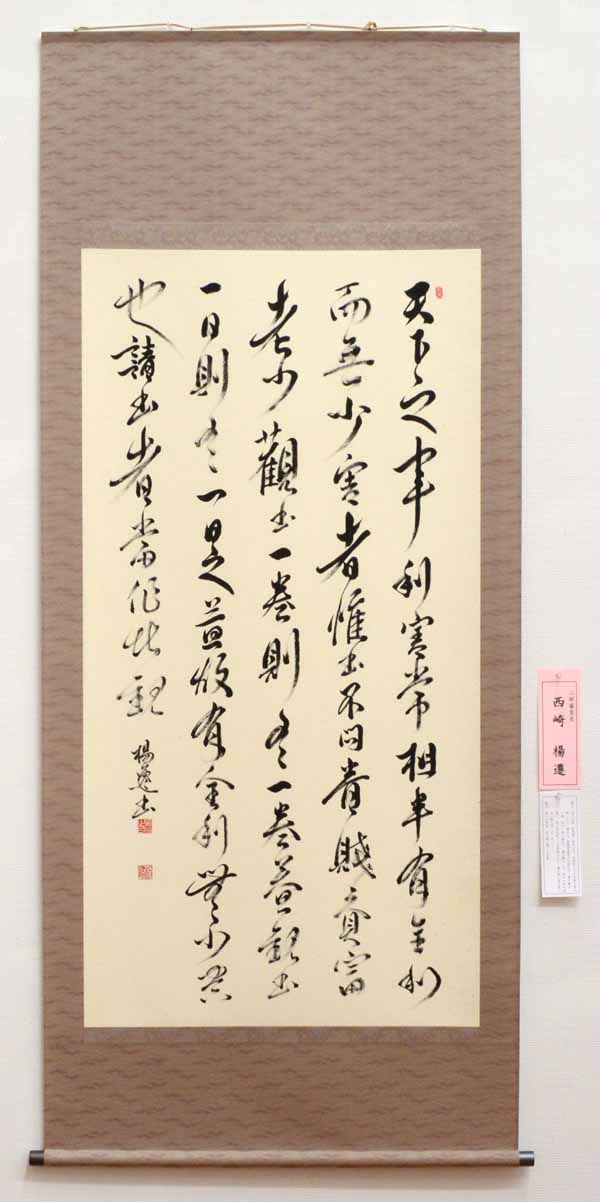 天下之事利害常相半有全利
而無少害者惟書不問貴賤貧富
老少觀書一卷則有一卷益觀書
一日則有一日之益故有全利無少害
也讀書者當作此觀 楊遷書
西崎 楊遷